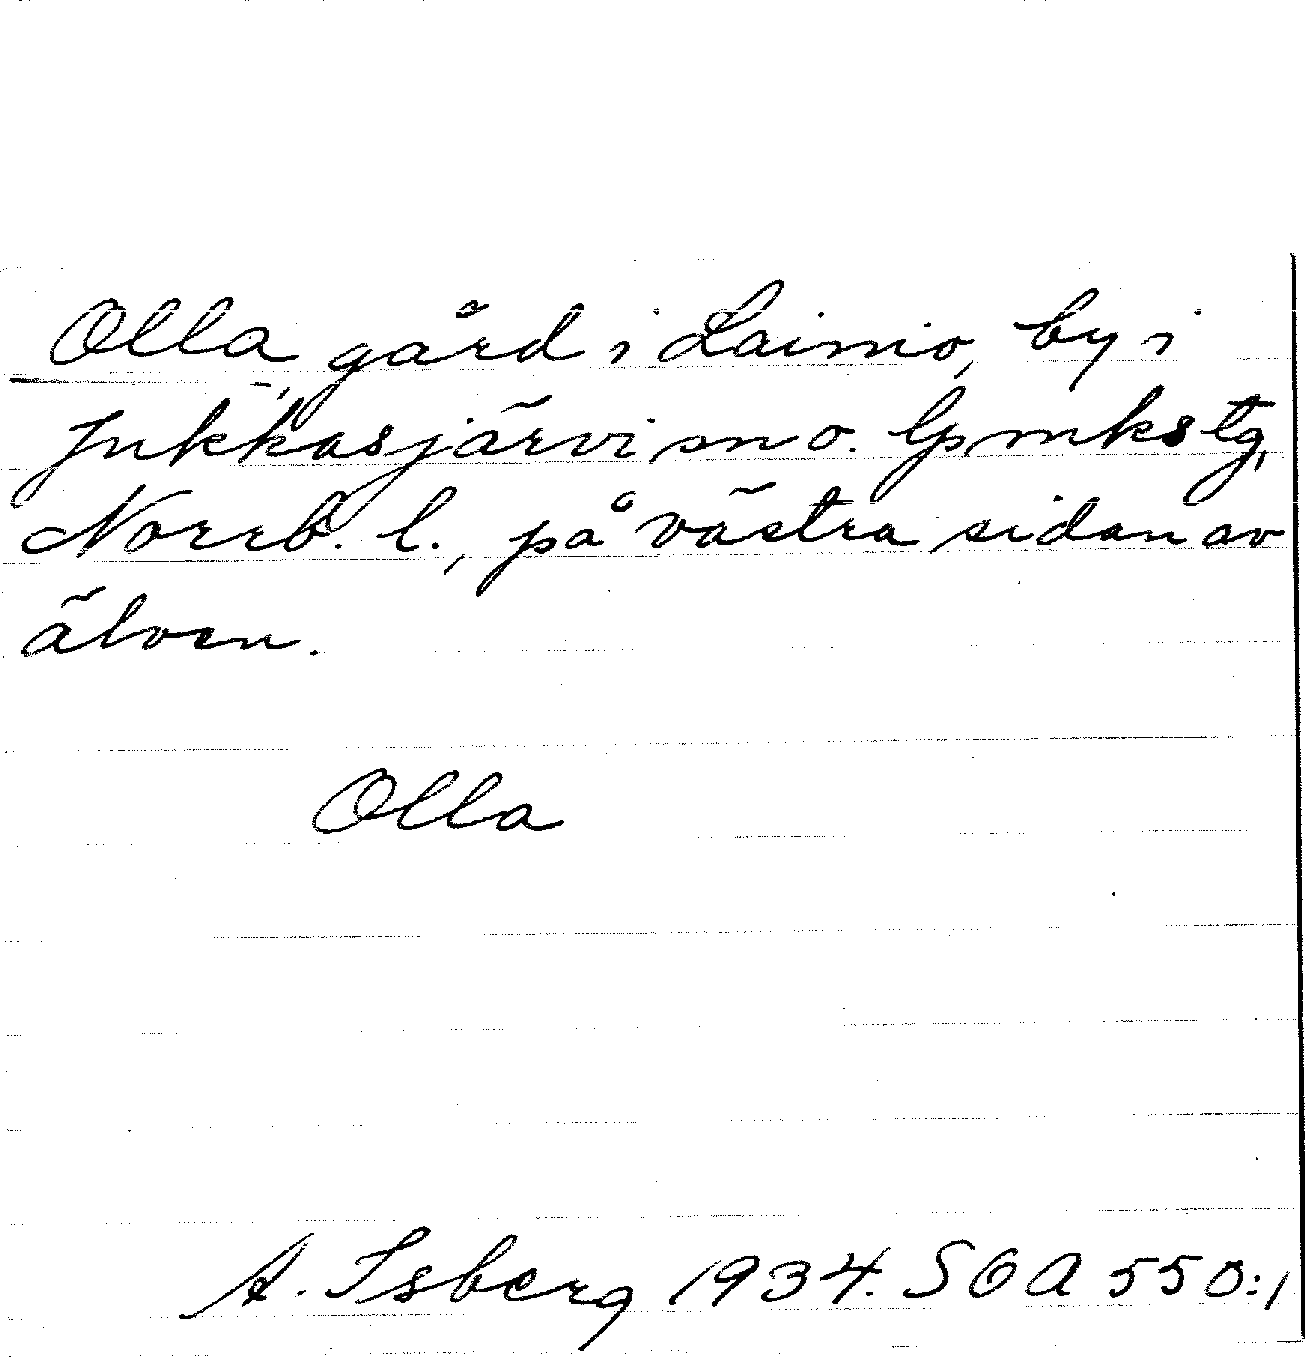 Olla, gård i Lainio, by i
Jukkasjärvi sn o. lpmkstg,
Norrb. l., på västra sidan av
älven.
Olla
A. Isberg 1934. SOA 550:1